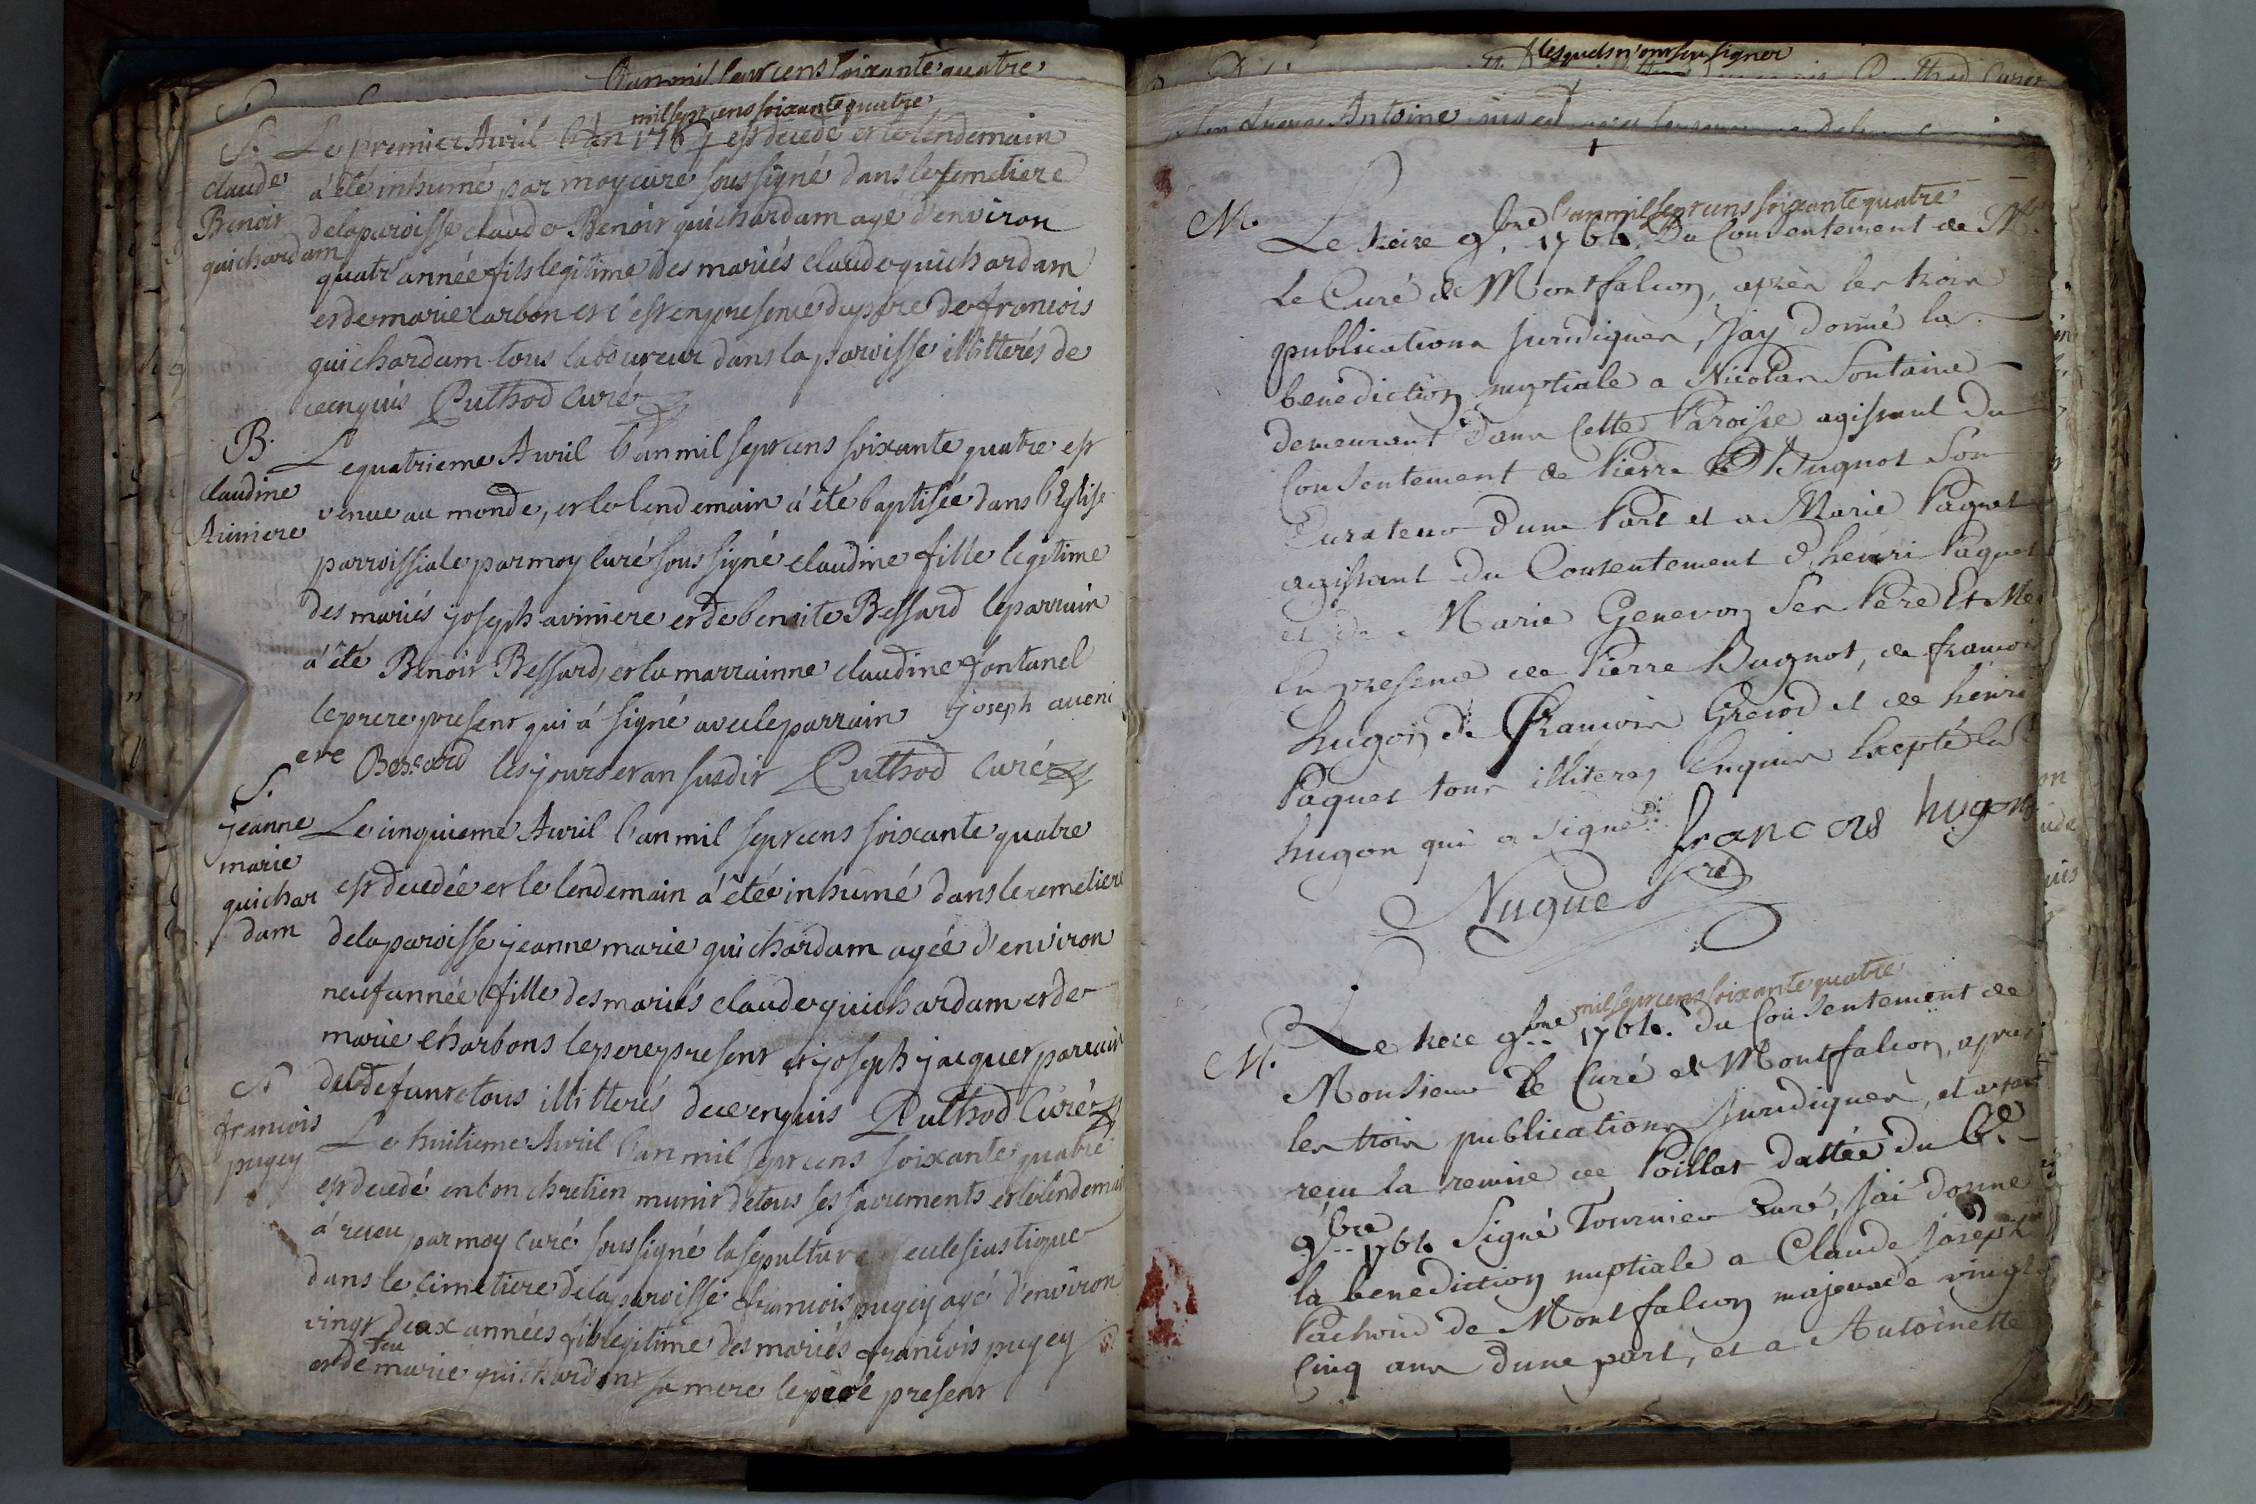 L'an mil sept cens soixante quatre
mil sept cens soixante quatre
S. Le premier Avril l'an 1764 est decedé et le lendemain
claude à été inhumé par moy curé sous signé dans le semetiere
Benoit de la paroisse claude Benoit guichardam agé d'environ
guichardam quatr' année fils legitime des mariés claude guichardam
et de marie carbon et c'est en presence du pere de francois
guichardam tous laboureur dans la paroisse illitterés de
ce enquis Puthod Curé
B. Le quatrieme Avril l'an mil sept cens soixante quatre est
claudine venue au monde, et le lendemain à été baptisée dans l'Eglise
Aviniere parroissiale par moy Curé sous signé claudine fille legitime
des mariés joseph aviniere et de benoite Bessard le parrain
à été Benoit Bessard, et la marrainne claudine fontanel
le prere present qui à signé avec le parrain joseph aveni
ere Bessard les jours et an susdit Puthod Curé
S.
jeanne Le cinquieme Avril l'an mil sept cens soixante quatre
marie
guichar est decedée et le lendemain à étée inhumé dans le semetiere
dam de la paroisse jeanne marie guichardam agée d'environ
neuf année fille des mariés claude guichardam et de
marie charbons le pere present et joseph jacquet parrain
de la defunte tous illitterés de ce enquis Puthod Curé
S
francois Le huitieme Avril l'an mil sept cens soixante quatre
pugey est decedé en bon chretien munit de tous ses sacrements et le lendemai
à recu par moy curé sous signé la sepulture eclesiastique
dans le cimetiere de la paroisse francois pugey agé d'environ
vingt deux années fils legitime des mariés francois pugey
feu
et de marie guichardant sa mere le pere present
lesquels n'ont su signer
Antoine
l'an mil sept cens soixante quatre
M. Le treize 9bre 1764. Du Consentement de Mr.
Le Curé de Montfalcon, après les trois
publications Juridiques, J'ay donné la
benediction nuptiale a Nicolas Fontaine
demeurant dans cette Paroisse agissant du
Consentement de Pierre Bugnot Son
Curateur d'une Part et a Marie Paquet
agissant du Consentement d'henri Paquet
et de Marie Genevon Ses Pere Et Me
En presence de Pierre Bugnot, de francois
hugon de francois Grenod et de henri
Paquet tous illiterez Enquis Excepté led.
hugon qui a signé francois hugon
Nugue
mil sept cens soixante quatre
M. Le treze 9bre 1764. du Consentement de
Monsieur Le Curé de Montfalcon, apres
les trois publications Juridiques, et ayant
reçu la remise de Poillat dattée du 6e
9bre 1764 Signé Tournier Curé, J'ai donné
la benediction nuptiale a Claude Joseph
Pachoud de Montfalcon majeur de vingt
Cinq ans d'une part, et a Antoinette